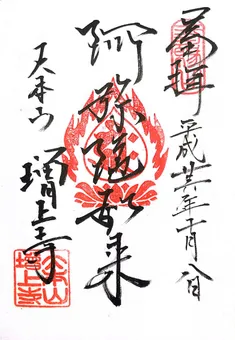 奉拝 平成廿六年十月八日
阿弥陀如来
大本山 増上寺
大本山
増上寺